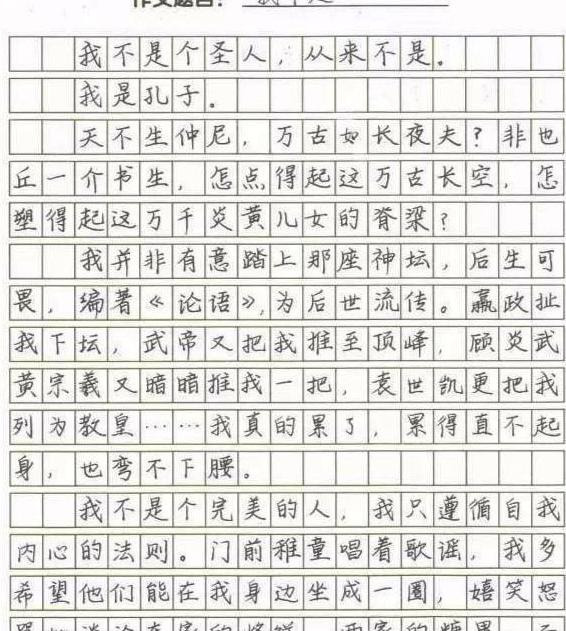 我不是个圣人，从来不是。
我是孔子。
天不生仲尼，万古如长夜夫？非也
丘一介书生，怎点得起这万古长空，怎
塑得起这万千炎黄儿女的脊梁？
我并非有意踏上那座神坛，后生可
畏，编著《论语》，为后世流传。嬴政扯
我下坛，武帝又把我推至顶峰，顾炎武
黄宗羲又暗暗推我一把，袁世凯更把我
列为教皇……我真的累了，累得直不起
身，也弯不下腰。
我不是个完美的人，我只遵循自我
内心的法则。门前稚童唱着歌谣，我多
希望他们能在我身边坐成一圈，嬉笑怒